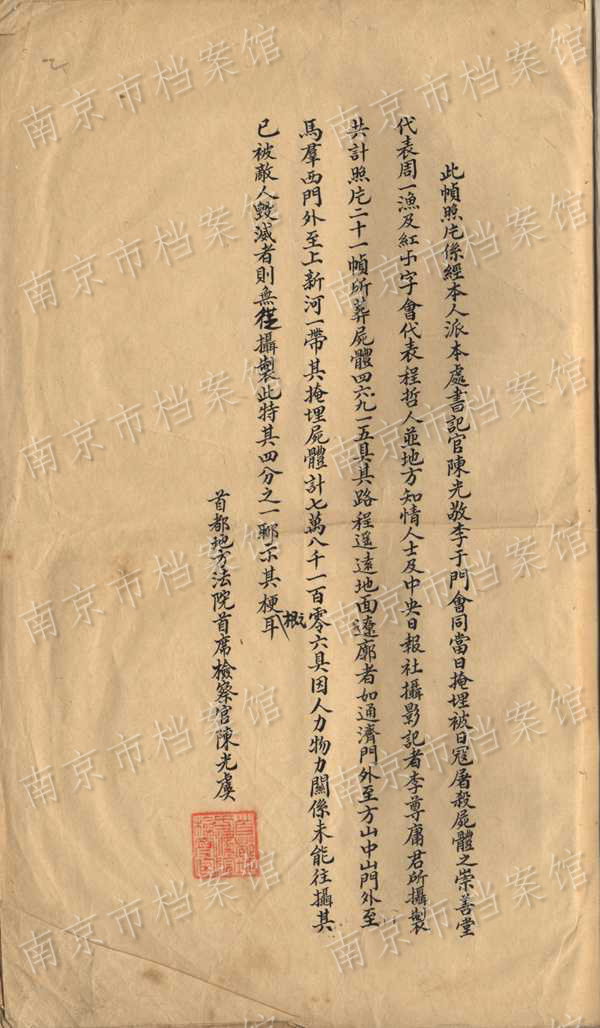 此幀照片係經本人派本處書記官陳光敬李于門會同當日掩埋被日寇屠殺屍體之崇善堂
代表周一漁及紅卍字會代表程哲人並地方知情人士及中央日報社攝影記者李尊庸君所攝製
共計照片二十一幀所葬屍體四六九一五具其路程遥遠地面遼廓者如通濟門外至方山中山門外至
馬羣西門外至上新河一帶其掩埋屍體計七萬八千一百零六具因人力物力關係未能往攝其
已被敵人毀滅者則無從攝製此特其四分之一耶示其梗概耳
首都地方法院首席檢察官陳光虞
南京市档案馆